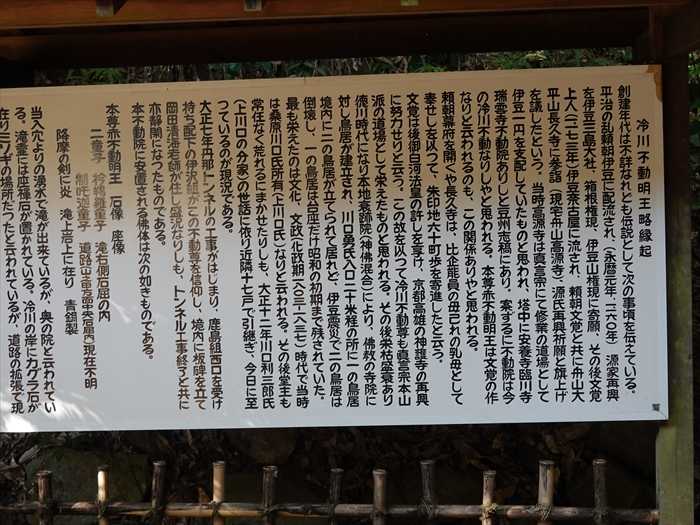 冷川不動明王略縁起
創建年代は不詳なれども伝説として次の事頃を伝えている。
平治の乱頼朝伊豆に配流され、(永暦元年、一一六〇年)源家再興
を伊豆三島大社、箱根権現、伊豆山権現に寄願、その後文覚
上人(一一七三年)伊豆奈古屋に流され、頼朝文覚と共に舟山大
平山長久寺に参詣(現宅舟山高源寺)源氏再興祈願と旗上げ
を議したという、当時高源寺は真言宗にて修業の道場として
伊豆一円を支配していたものと思われ、塔中に安養寺臨川寺
瑞雲寺不動院ありしと豆州志稿にあり、案するに不動院は今
の冷川不動なりしやと思われる。本尊赤不動明王は文覚の作
なりと云われるのも、この関係なりやと思われる。
頼朝幕府を開くや長久寺は、比企能員の母己れの乳母として
奉せしを以って、朱印地六十町歩を寄進したと云う。
文覚は後御白河法皇の許しを享け、京都高雄の神護寺の再興
に努力せりと云う。この故を以って冷川不動尊も真言宗本山
派の道場として栄えたものと思われる。その後栄枯盛衰あり
徳川時代になり本地垂跡院(神佛混合)により、佛教の寺院に
対し鳥居が建立され、川口勇氏入口二十米程の所に一の鳥居
境内に二の鳥居が立てられて居れど、伊豆震災で二の鳥居は
倒壊し、一の鳥居は台座だけ昭和の初期まで残されていた。
最も栄えたのは文化、文政(化政期一八〇三~一八三七)時代で当時
は桑原川口氏所有(上川口氏)なりと云われる。その後堂主も
常住なく荒れるにまかせたりしも、大正十二年川口利三郎氏
(上川口の分家)の世話に依り近隣十七戸で引継ぎ、今日に至
っているのが現況である。
大正七年丹那トンネルの工事がはじまり、鹿島組西口を受け
持ち配下の伊沢組がこの不動尊を信仰し、境内に板碑を立て
岡田清海老師が住し盛況なりしも、トンネル工事終了と共に
亦静閑になったものである。
本不動院に安置される佛体は次の如きものである。
本尊赤不動明王 石像 座像
二童子 衿羯羅童子 滝右側石屈の内
制吒迦童子
降摩の剣に炎 滝上岩上に在り 青銅製
当入穴よりの湧水で滝が出来ているが、奥の院と云われてい
る。滝壺には座禅石が置かれている。冷川の岸にカグラ石が
在りミソギの場所だったと云われているが、道路の拡張で現